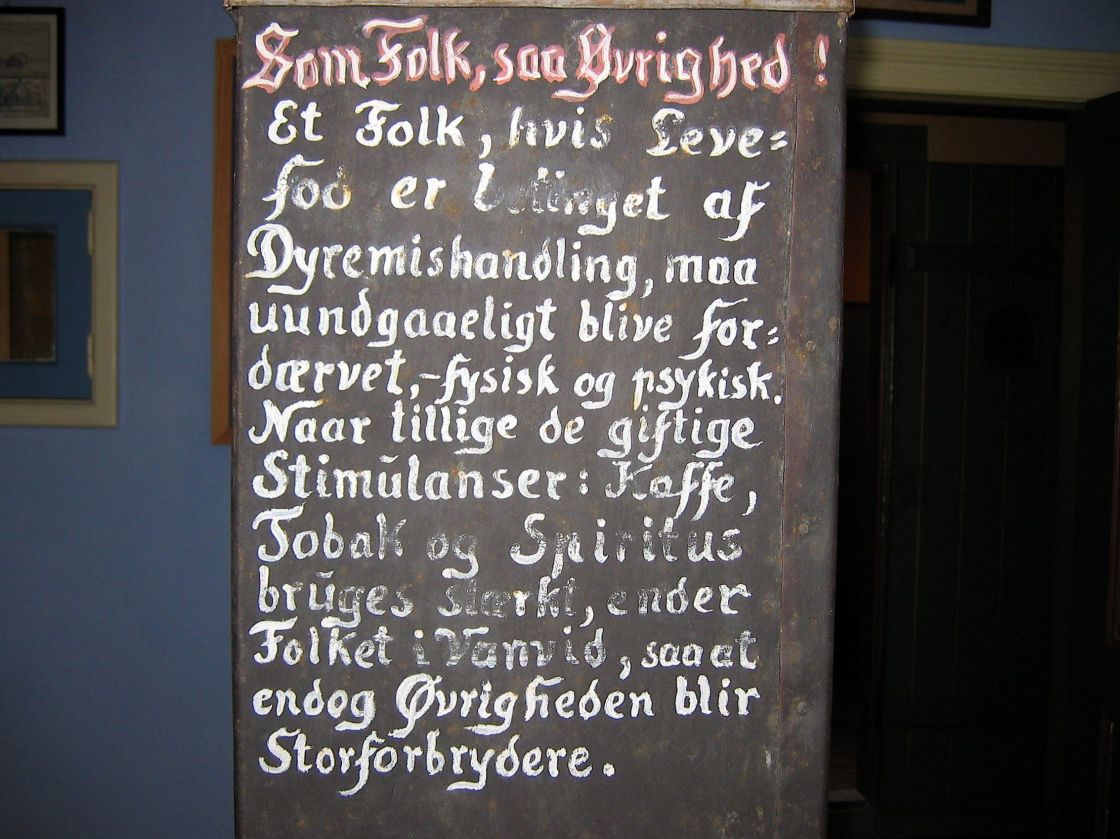 Som Folk, saa Øvrighed !
Et Folk, hvis Leve=
fod er betinget af
Dyremishandling, maa
uundgaaeligt blive for=
dærvet,-fysisk og psykisk.
Naar tillige de giftige
Stimŭlanser: Kaffe,
Tobak og Spiritus
brŭges stærkt, ender
Folket i Vanvid, saa at
endog Øvrigheden blir
Storforbrydere.